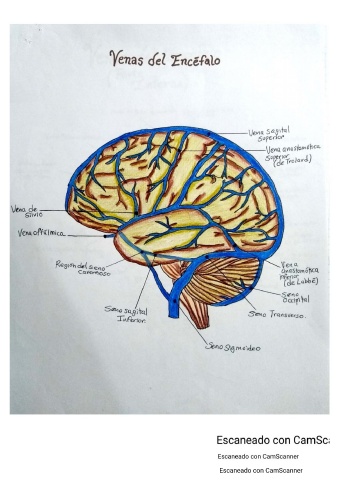 Venas del Encéfalo
Vena sagital
Superior
Vena anastomótica
Superior
(de Trolard)
Vena de
Silvio
Vena Oftálmica
Región del seno
cavernoso
Vena
anastomótica
inferior
(de Labbé)
Seno
Occipital
Seno sagital
Inferior.
Seno Transverso.
Seno Sigmoideo
Escaneado con CamSca
Escaneado con CamScanner
Escaneado con CamScanner